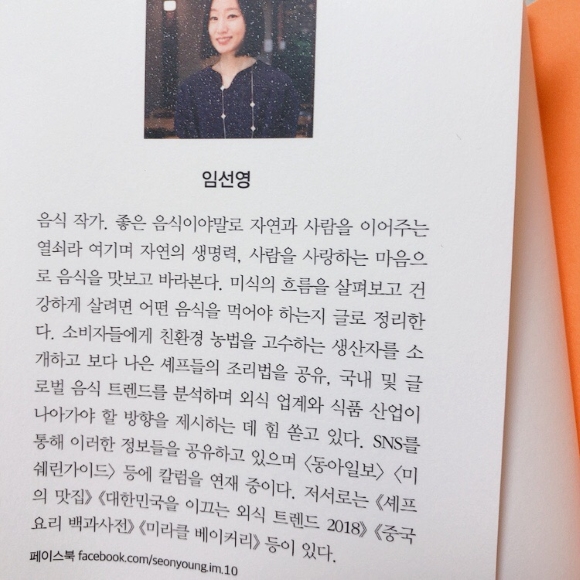 임선영
음식 작가. 좋은 음식이야말로 자연과 사람을 이어주는
열쇠라 여기며 자연의 생명력, 사람을 사랑하는 마음으
로 음식을 맛보고 바라본다. 미식의 흐름을 살펴보고 건
강하게 살려면 어떤 음식을 먹어야 하는지 글로 정리한
다. 소비자들에게 친환경 농법을 고수하는 생산자를 소
개하고 보다 나은 셰프들의 조리법을 공유, 국내 및 글
로벌 음식 트렌드를 분석하며 외식 업계와 식품 산업이
나아가야 할 방향을 제시하는 데 힘 쏟고 있다. SNS를
통해 이러한 정보들을 공유하고 있으며 〈동아일보〉 〈미
쉐린가이드〉 등에 칼럼을 연재 중이다. 저서로는 《셰프
의 맛집》 《대한민국을 이끄는 외식 트렌드 2018》 《중국
요리 백과사전》 《미라클 베이커리》 등이 있다.
페이스북 facebook.com/seonyoung.im.10